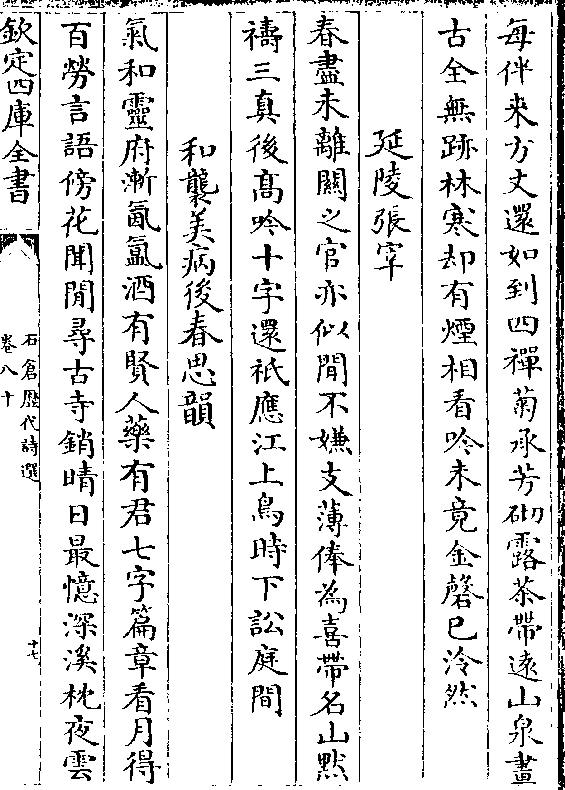 每伴来方丈還如到四禪菊承芳砌露茶帶遠山泉畫
古全無跡林寒却有煙相看吟未竟金磬已泠然
延陵張宰
春盡未離闗之官亦似閒不嫌支薄俸為喜帶名山黙
禱三真後髙吟十字還秖應江上鳥時下訟庭間
和襲美病後春思韻
氣和靈府漸氤氲酒有賢人藥有君七字篇章看月得
百勞言語傍花聞閒尋古寺銷晴日最憶深溪枕夜雲
欽定四庫全書
石倉歴代詩選
卷八十
十七